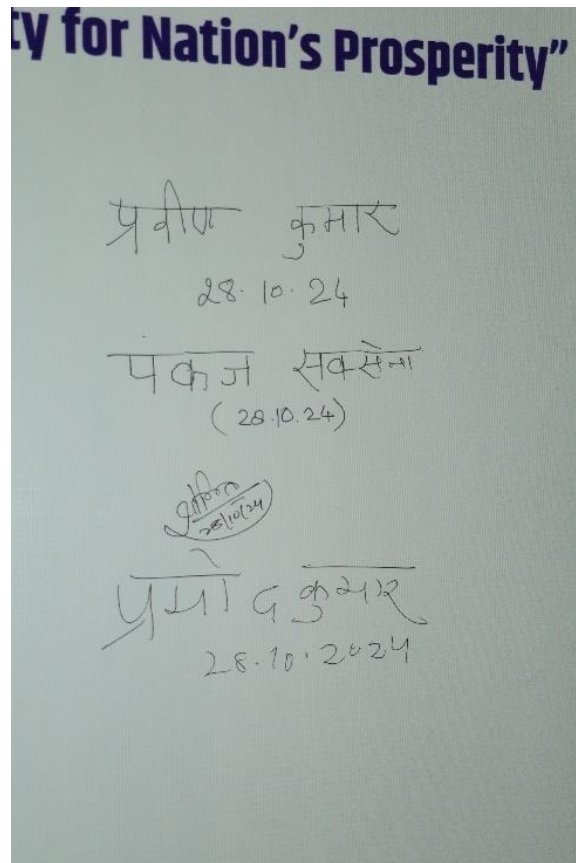 ty for Nation's Prosperity”
प्रवीण कुमार
28.10.24
पंकज सक्सेना
(28.10.24)
28/10/24
प्रमोद कुमार
28.10.2024